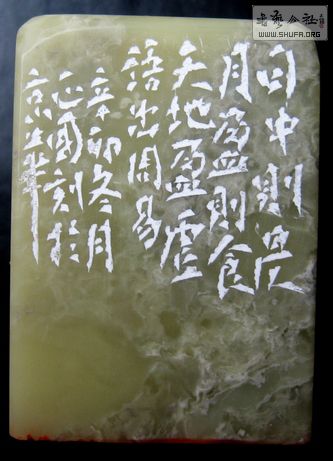 日中則昃
月盈則食
天地盈虛
語出周易
辛卯冬月
國刻於
京華
書藝公社
WWW.SHUFA.ORG